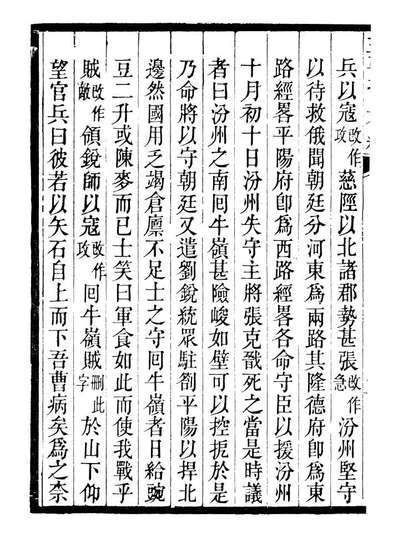 兵以寇改作攻慈隰以北諸郡勢甚張改作急汾州堅守
以待救俄聞朝廷分河東爲兩路其隆德府卽爲東
路經畧平陽府卽爲西路經畧各命守臣以援汾州
十月初十日汾州失守主將張克戩死之當是時議
者曰汾州之南囘牛嶺甚險峻如壁可以控扼於是
乃命將以守朝廷又遣劉銳統眾駐劄平陽以捍北
邊然國用乏竭倉廪不足士之守囘牛嶺者日給豌
豆二升或陳麥而已士笑曰軍食如此而使我戰乎
賊改作敵領銳師以寇改作攻囘牛嶺賊刪此字於山下仰
望官兵曰彼若以矢石自上而下吾曹病矣爲之柰